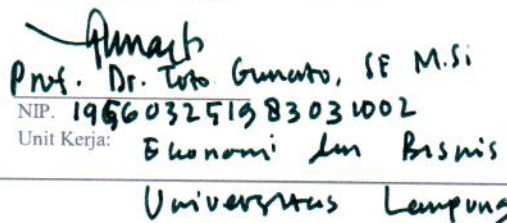 Prof. Dr. Toto Gunarto, SE M.Si
NIP. 195603251983031002
Unit Kerja: Ekonomi dan Bisnis
Universitas Lampung